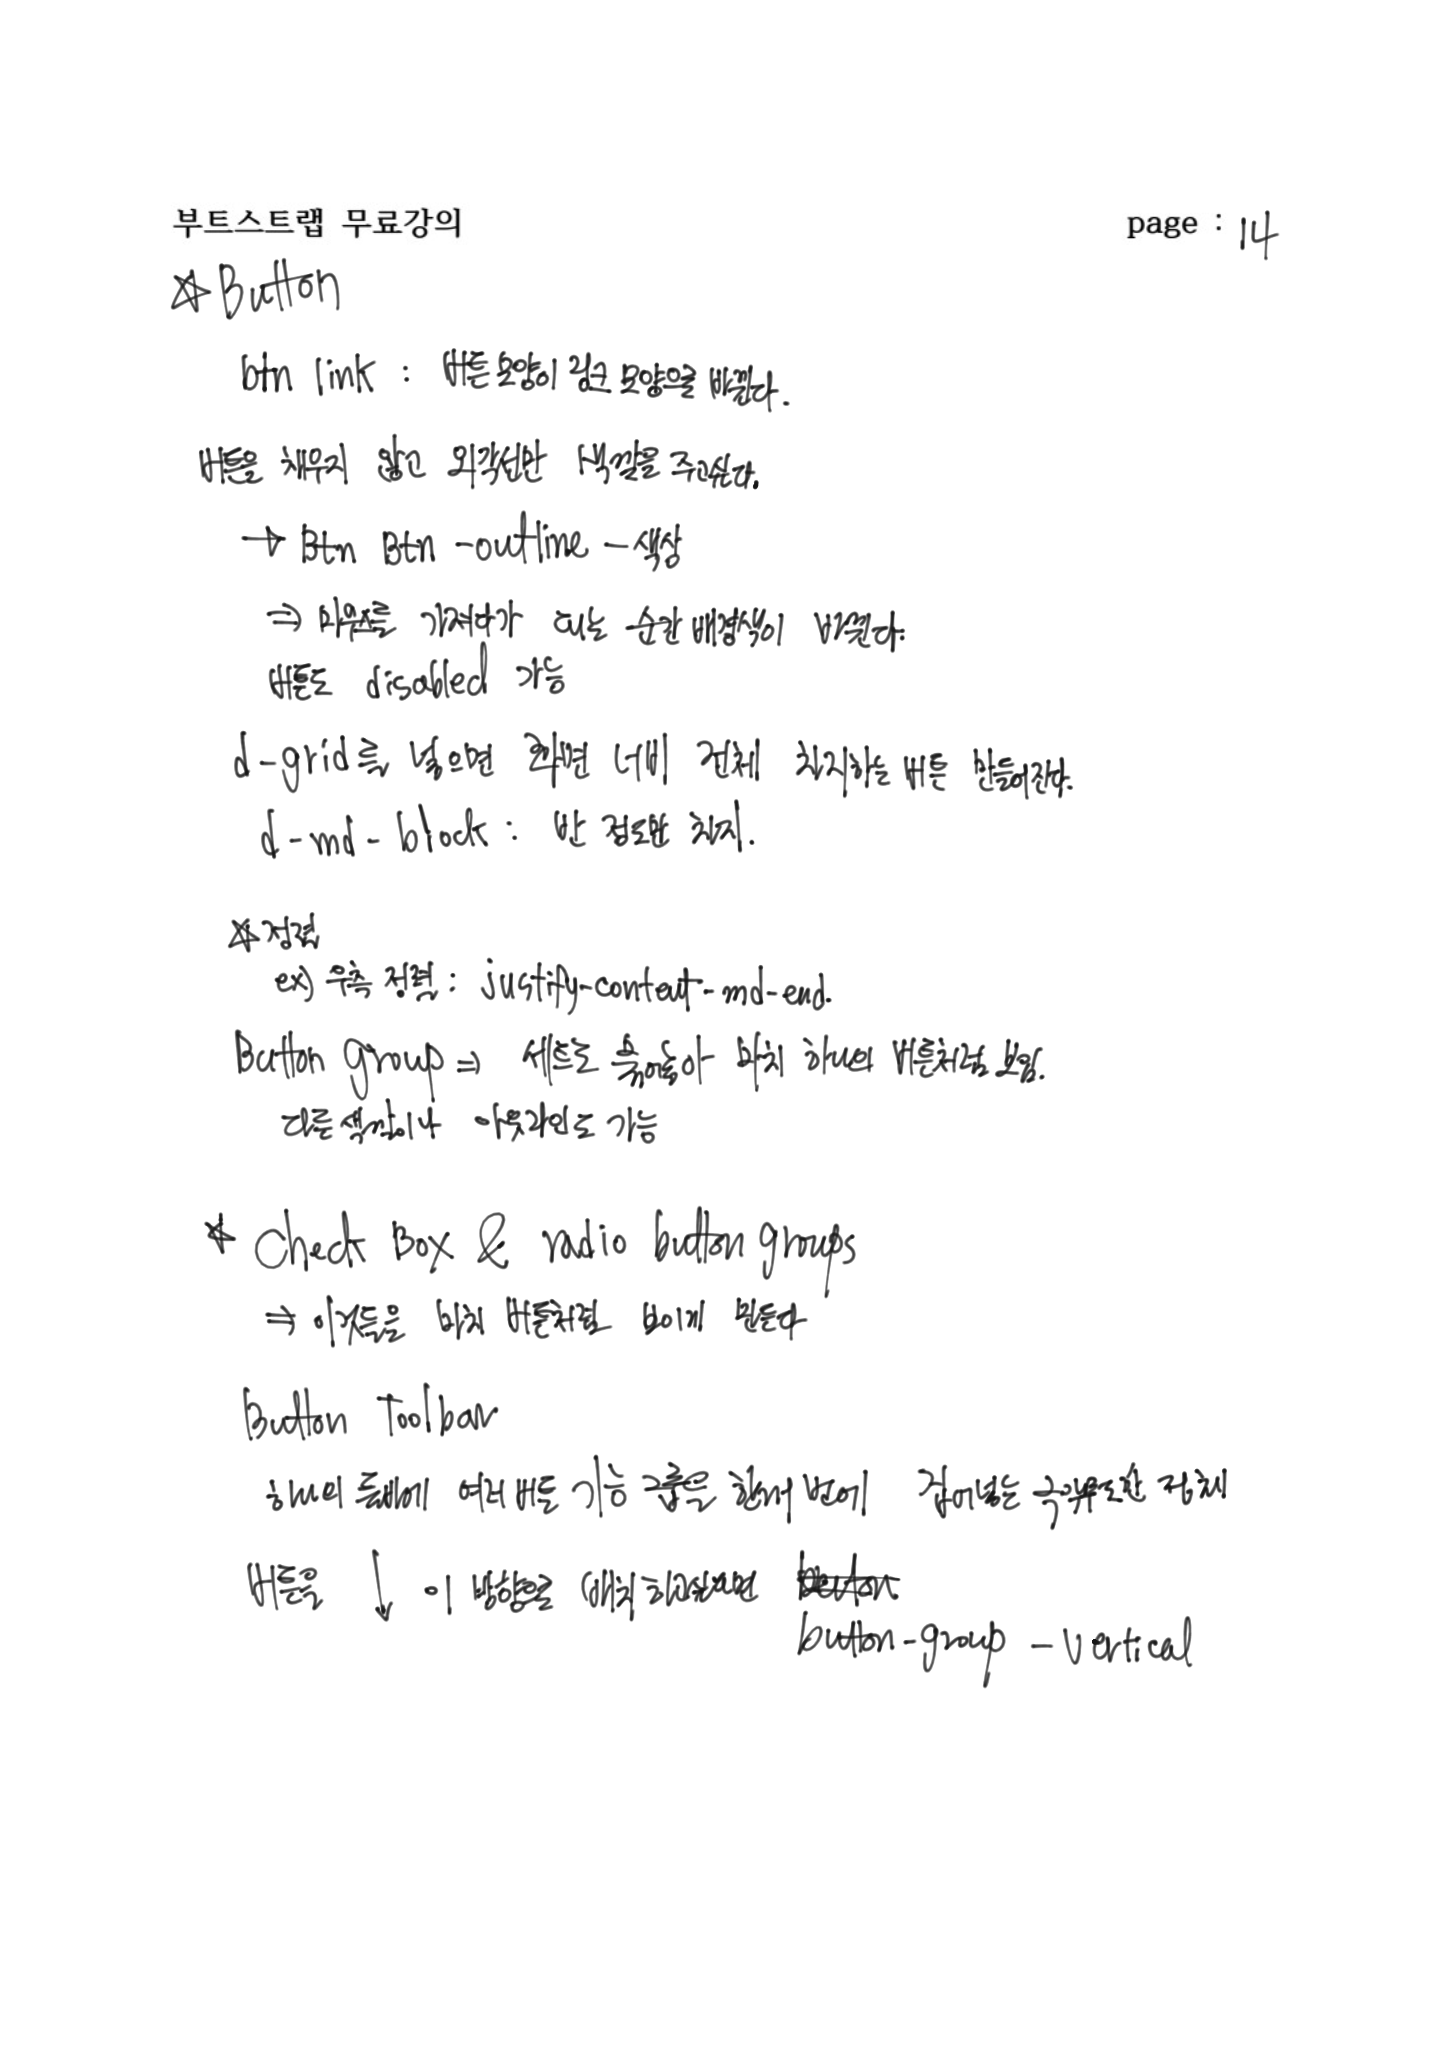 부트스트랩 무료강의
page : 14
☆ Button
btn link : 버튼 모양이 링크 모양으로 바뀐다.
버튼을 채우지 않고 외각선만 색깔을 주고싶다.
→ Btn Btn -outline - 색상
⇒ 마우스를 가져다가 대는 순간 배경색이 바뀐다.
버튼도 disabled 가능
d-grid를 넣으면 화면 너비 전체 차지하는 버튼 만들어진다.
d-md-block : 반 정도만 차지.
☆ 정렬
ex) 우측 정렬 : justify-content-md-end.
Button group ⇒ 세트로 묶어놓아 마치 하나의 버튼처럼 보임.
다른 색깔이나 아웃라인도 가능
☆ Check Box & radio button groups
⇒ 이것들을 마치 버튼처럼 보이게 만든다
Button Toolbar
하나의 툴바에 여러 버튼 기능 그룹을 한 번에 집어넣는
버튼을 ↓ 이 방향으로 배치 하고싶다면
button-group -vertical